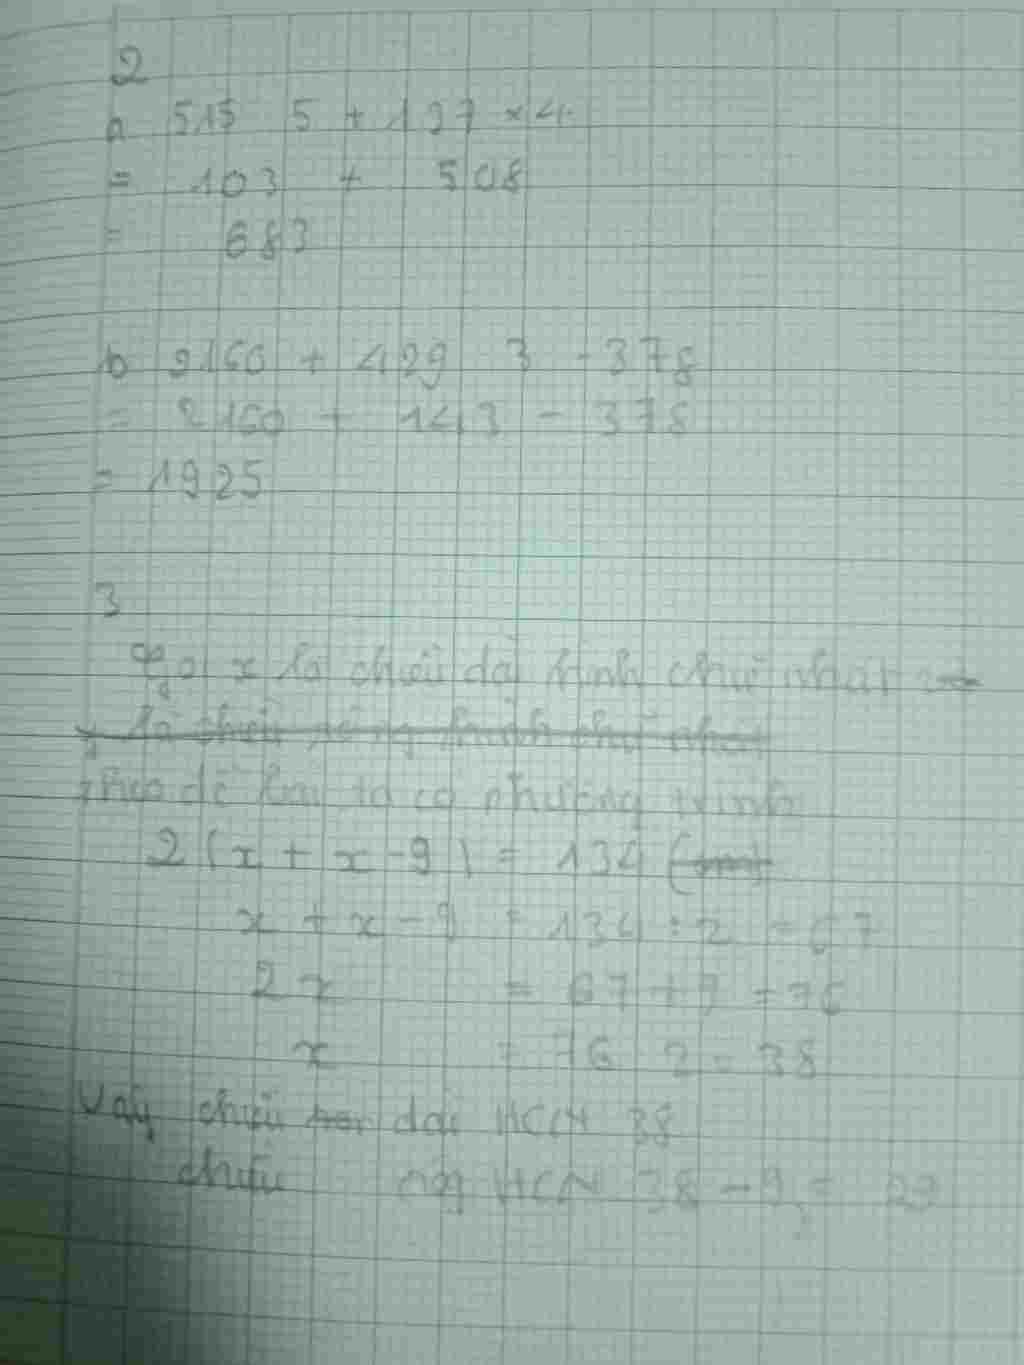 2
a 515 5 + 127 × 4
= 103 + 508
= 683
b 2160 + 429 3 - 378
= 2160 + 143 - 378
= 1925
3
Gọi x là chiều dài hình chữ nhật
y là chiều rộng hình chữ nhật
Theo đề bài ta có phương trình
2 ( x + x - 9 ) = 134 (cm)
x + x - 9 = 134 : 2 = 67
2x = 67 + 9 = 76
x = 76 2 = 38
Vậy chiều dài HCN 38
chiều ong HCN 38 - 9 = 29